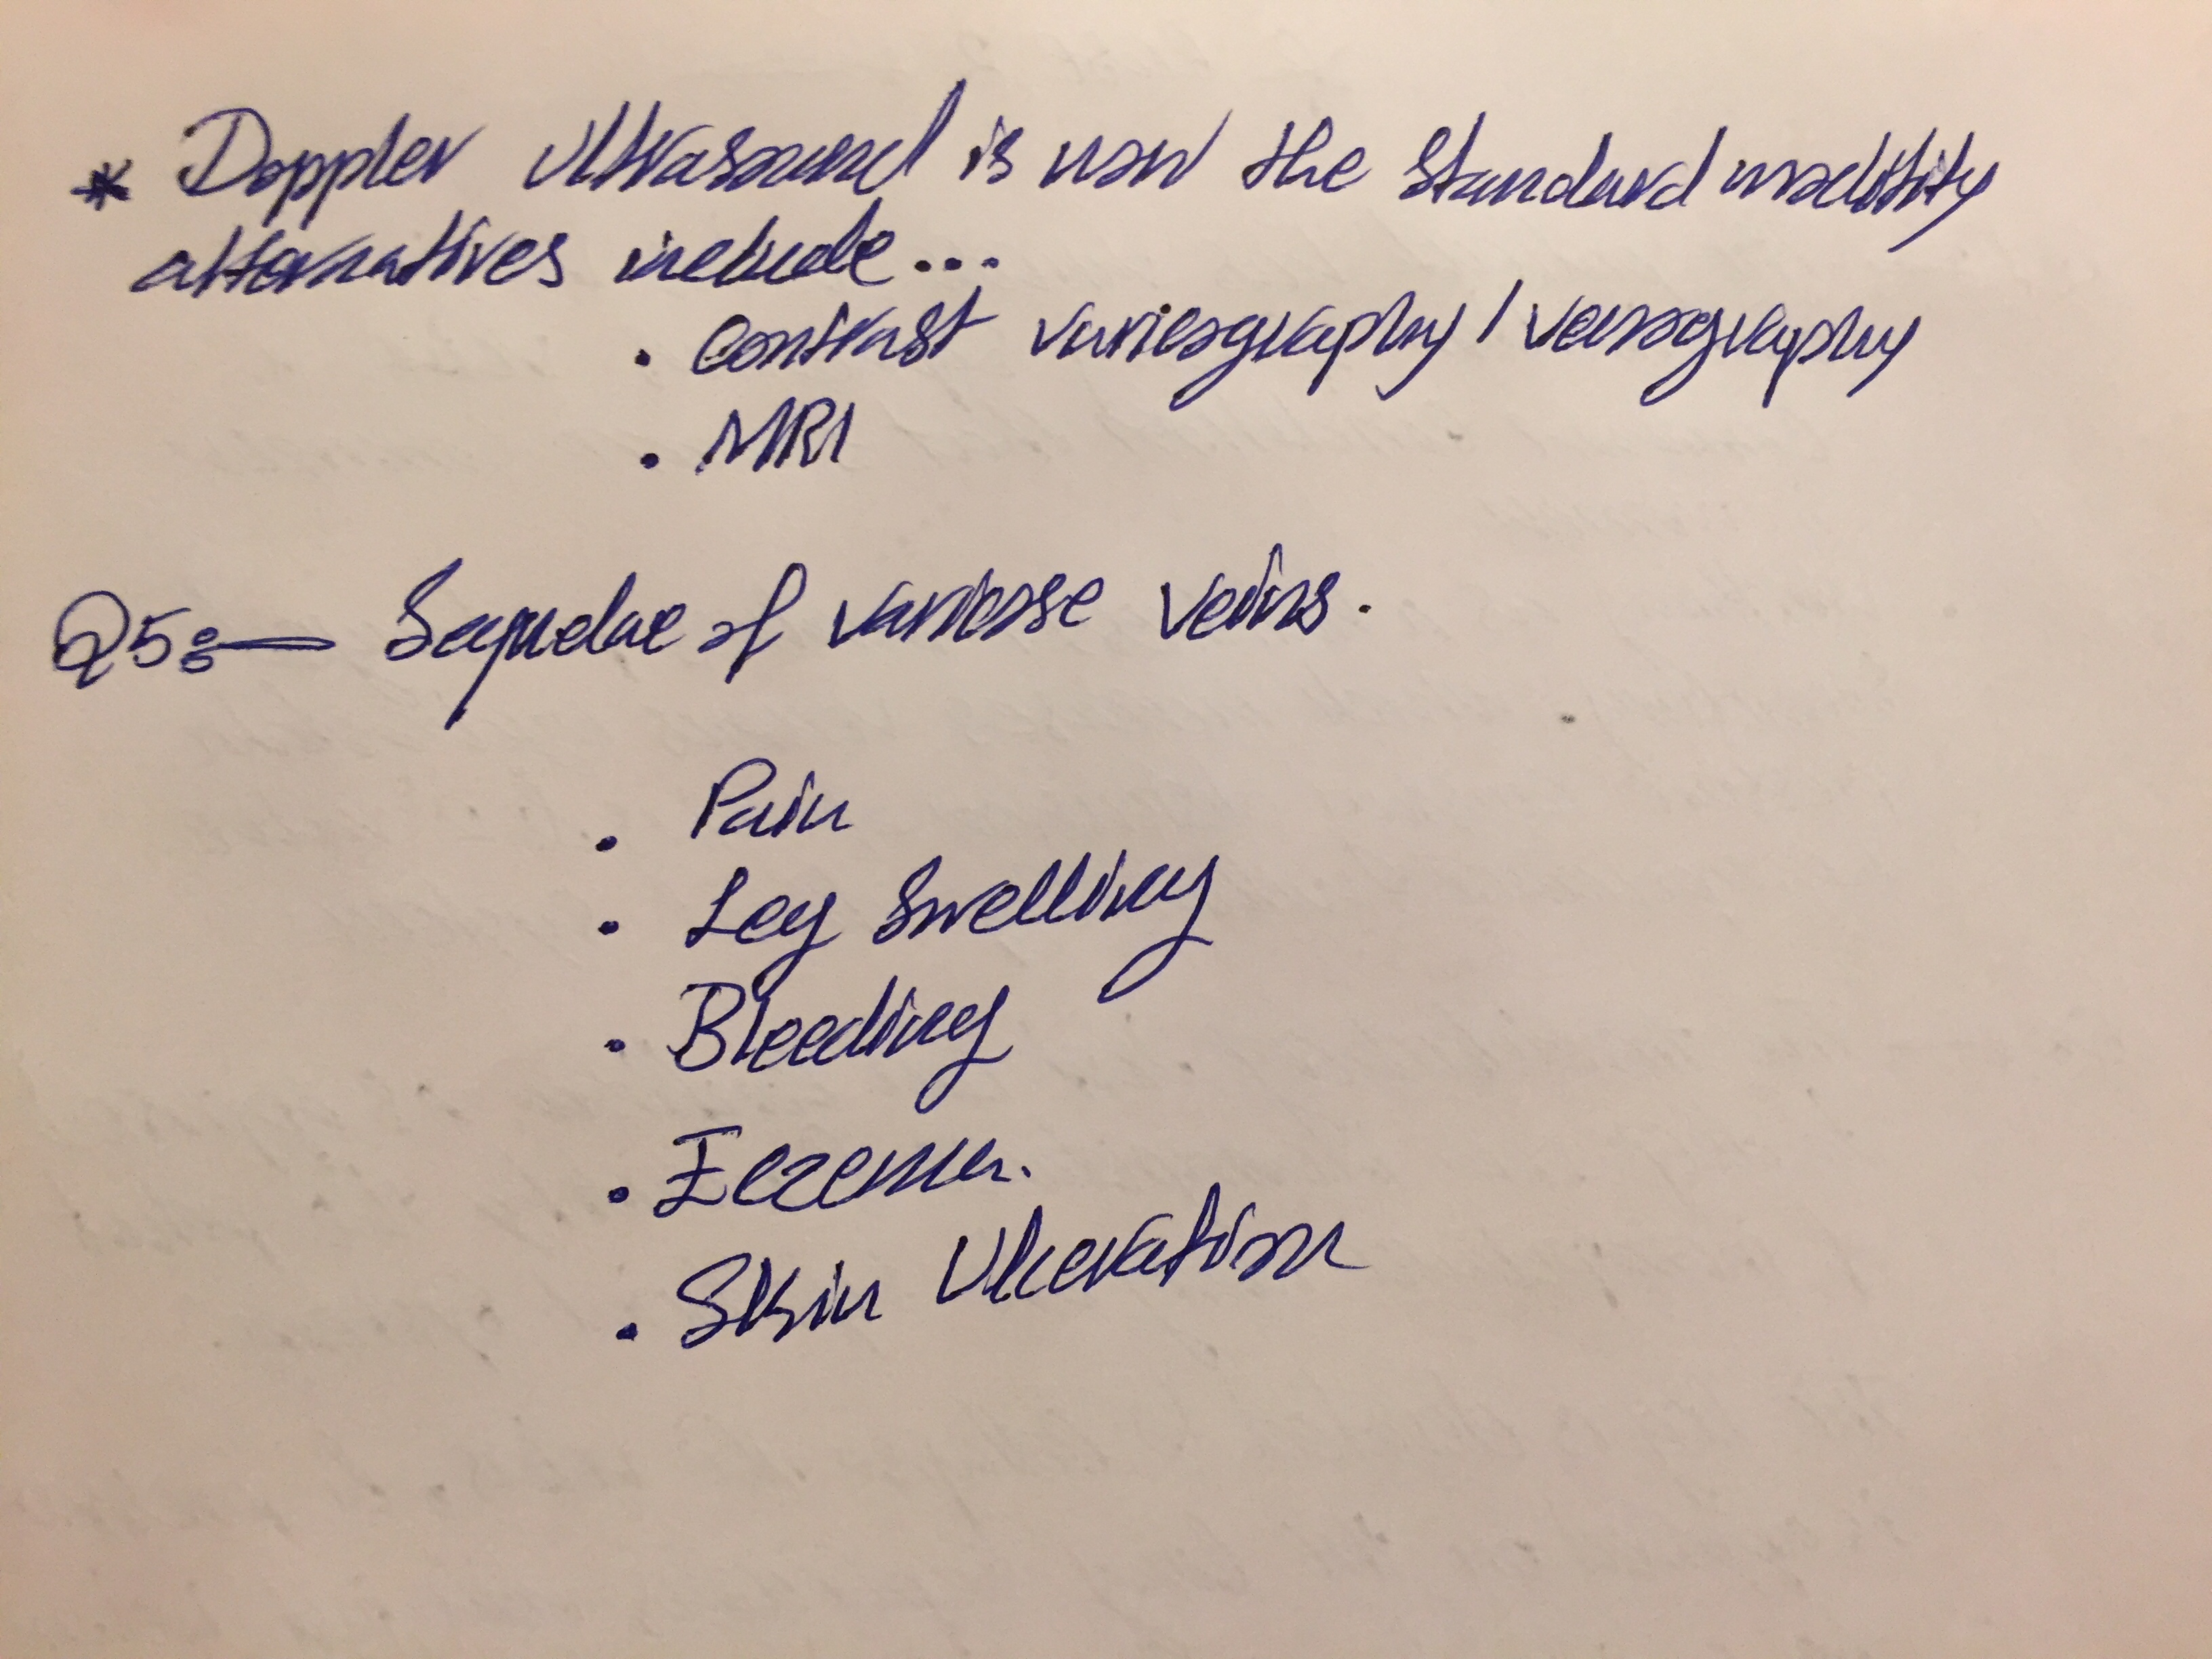 * Doppler ultrasound is now the standard modality
alternatives include...
• contrast varicography / venography
• MRI
Q5:— Sequelae of varicose veins.
• Pain
• Leg swelling
• Bleeding
• Eczema.
• Skin Ulceration